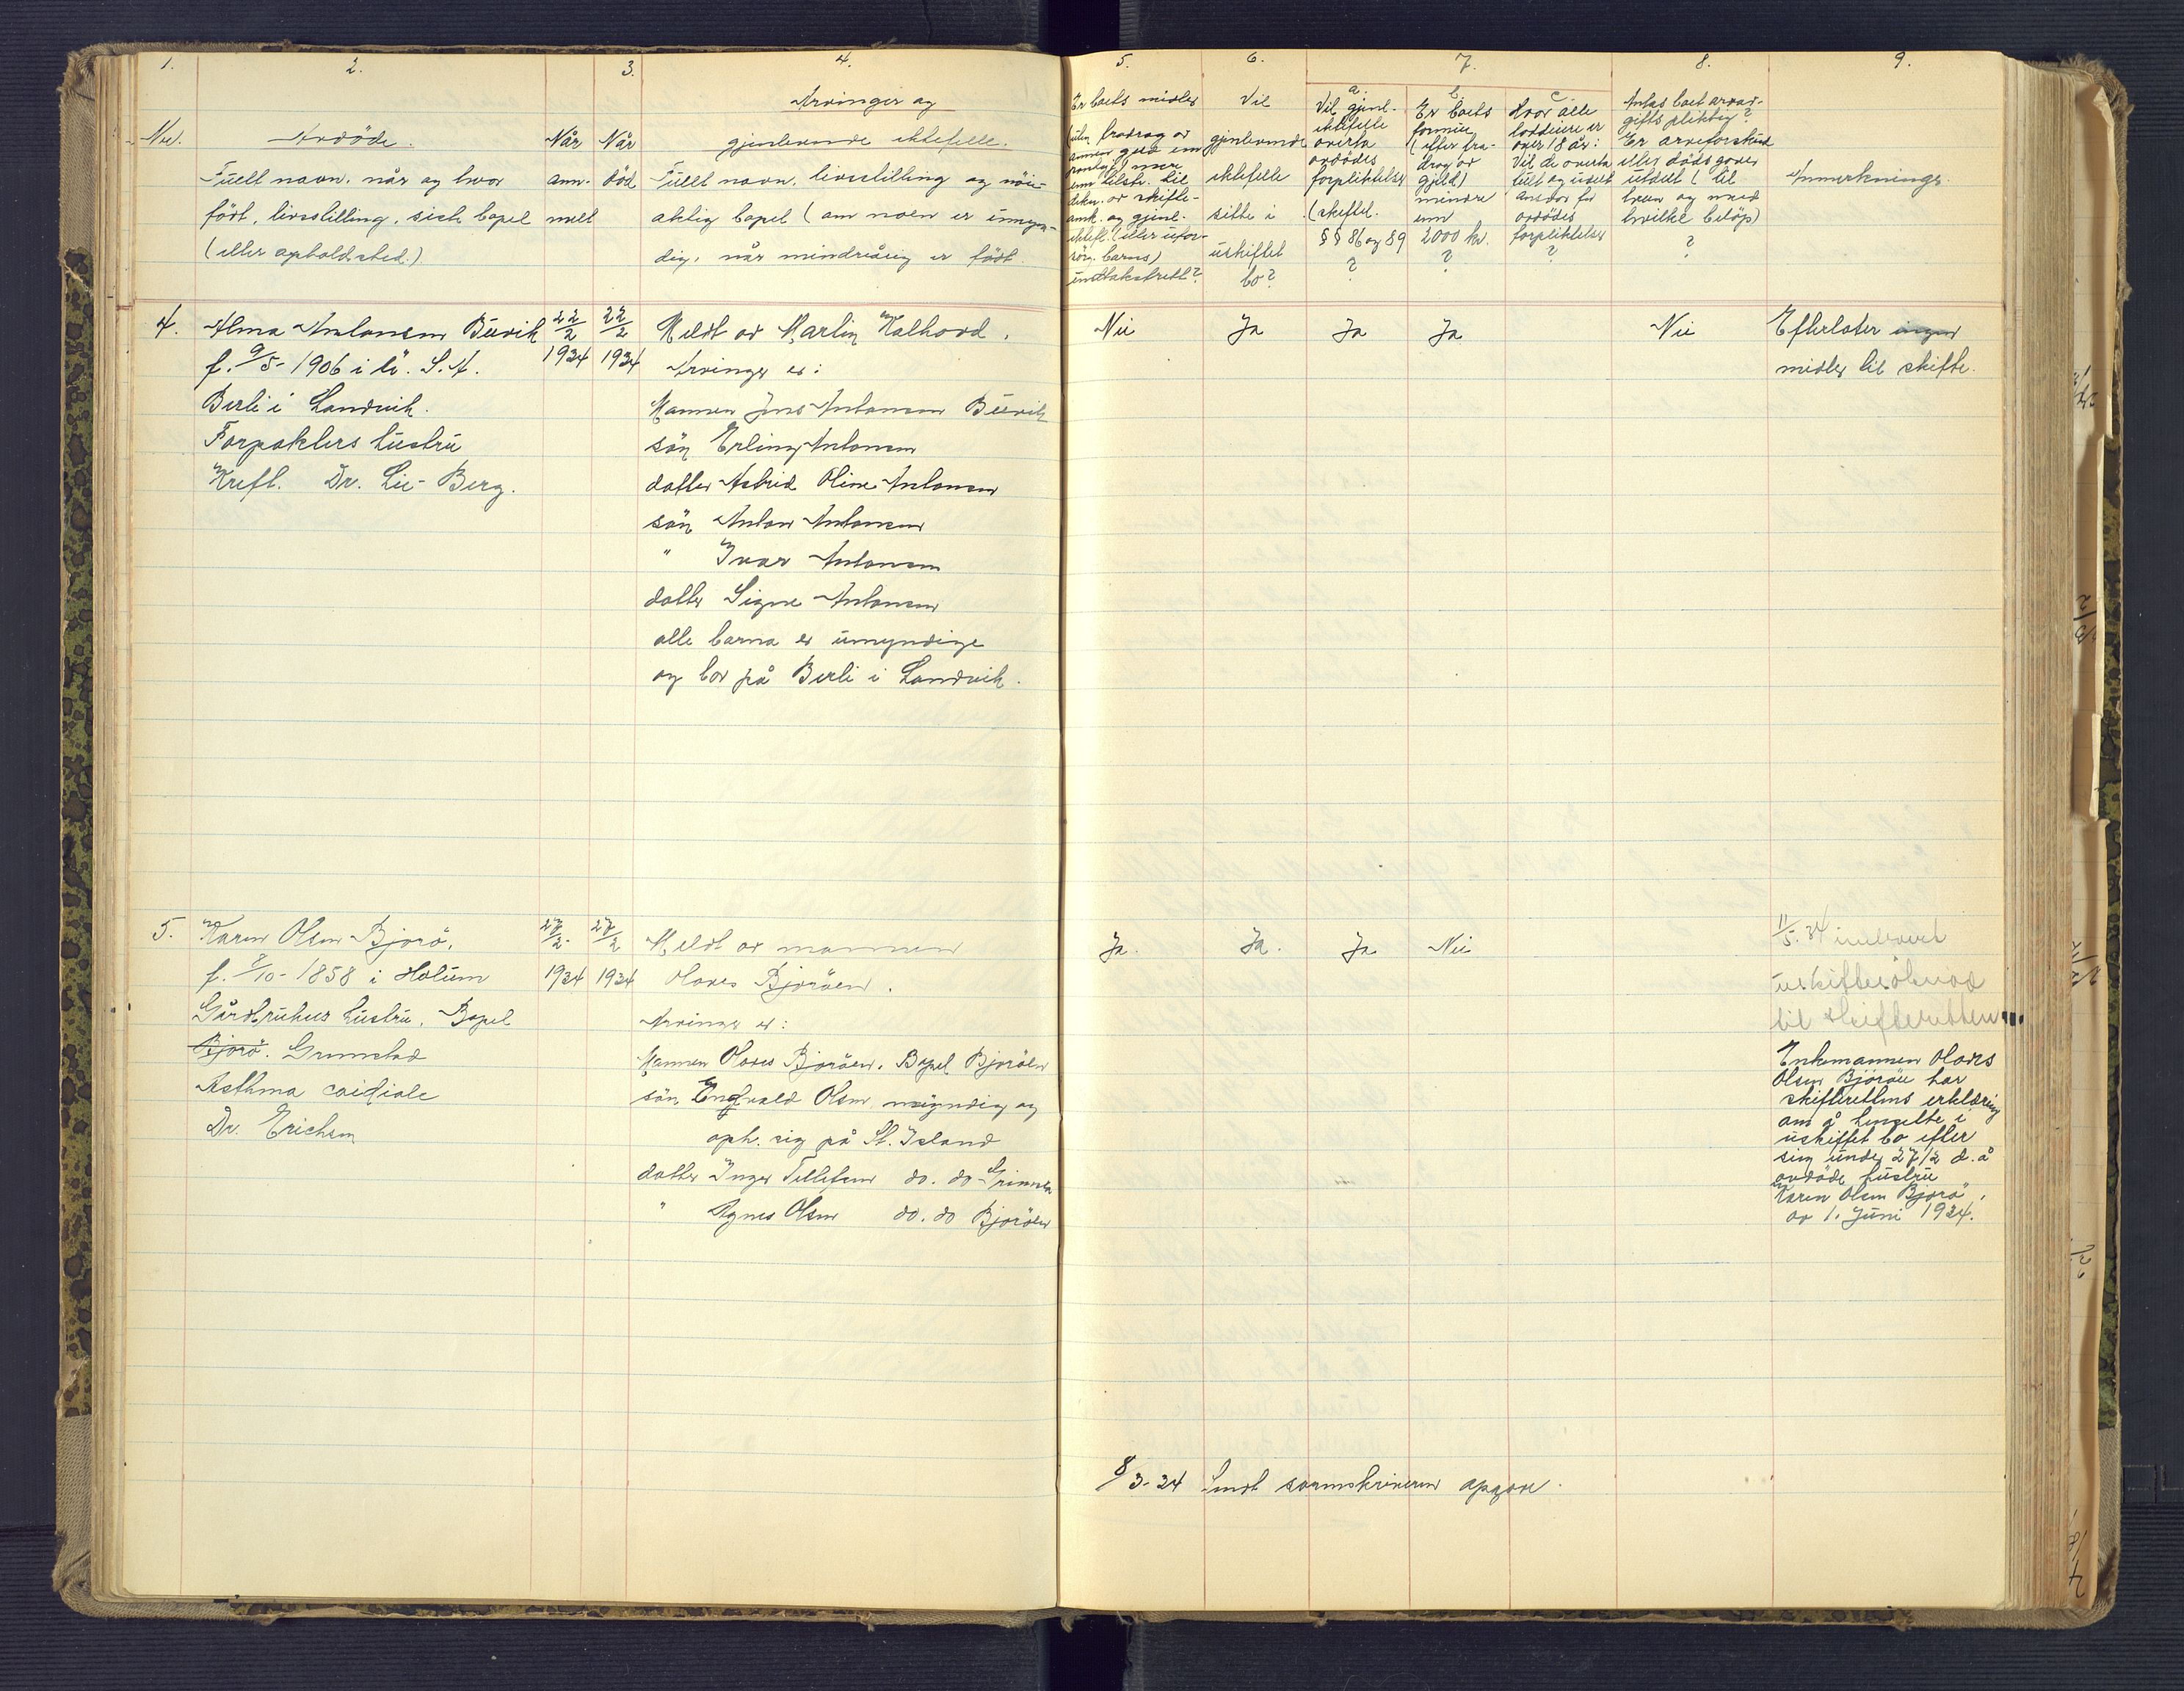 1.
2.
3.
4.
Nr.
Avdöde.
Fullt navn, når og hvor
født, livsstilling, sist bopel
(eller opholdssted.)
Når
anmelt
Når
död
Arvinger og
gjenlevende ektefelle.
Fullt navn, livsstilling og nöi-
aktig bopel (om noen er umyn-
dig, når mindreårig er født.
5.
6.
7.
8.
9.
Er boets midler
(uten fradrag av
annen gjeld enn
pantegj.) mere
enn tilstr. til
dekn. av skifte-
omk. og gjenl.
ektef. (eller ufor-
sörg. barns)
underhaldsrett?
Vil
gjenlevende
ektefelle
sitte i
uskiftet
bo?
a.
Vil gjenl.
ektefelle
overta
avdödes
forpliktelser
(skiftel.
§§ 86 og 89
?
b.
Er boets
formue
(efter fra-
drag av
gjeld)
mindre
enn
2000 kr.
?
c.
Hvor alle
loddeiere er
over 18 år:
Vil de overta
fullt og udelt
ansvar for
avdödes
forpliktelser
?
Antas boet arveav-
gifts pliktig?
Er arveforskudd
eller dödsgaver
utdelt (til
hvem og med
hvilke belöp)
?
Anmerkninger
4.
Alma Antonsen Buvik
f. 9/5-1906 i U.S.A.
Berli i Landvik.
Forpakters hustru
Kreft. Dr. Lie-Berg.
22/2
1934
22/2
1934
Meldt av Martin Kalhovd.
Arvinger er:
Mannen Jens Antonsen Buvik
sön Erling Antonsen
datter Astrid Oline Antonsen
sön Anton Antonsen
" Ivar Antonsen
datter Signe Antonsen
alle barna er umyndige
og bor på Berli i Landvik.
Nei
Ja
Ja
Ja
Nei
Efterlater ingen
midler til skifte.
5.
Karen Olsen Bjorö.
f. 8/10-1858 i Holum
Gårdbrukers hustru. Bopel
Bjorö. Grimstad
Asthma cardiale
Dr. Erichsen
27/2
1934
27/2
1934
Meldt av mannen
Olaves Bjoröen.
Arvinger er:
Mannen Olaves Bjoröen. Bopel Bjoröen
sön Engvald Olsen myndig og
oph. sig på St. Island
datter Inger Tellefsen do. do Grimsta
" Agnes Olsen do. do Bjoröen
Ja.
Ja.
Ja
Nei
11/5.34 innlevert
uskiftesöknad
til skifteretten
Enkemannen Olaves
Olsen Bjoröen har
skifterettens erklæring
om å hensitte i
uskiftet bo efter
sin under 27/2 d.å
avdöde hustru
Karen Olsen Bjorö,
av 1. Juni 1934.
8/3-34 Sendt sorenskriveren opgave.